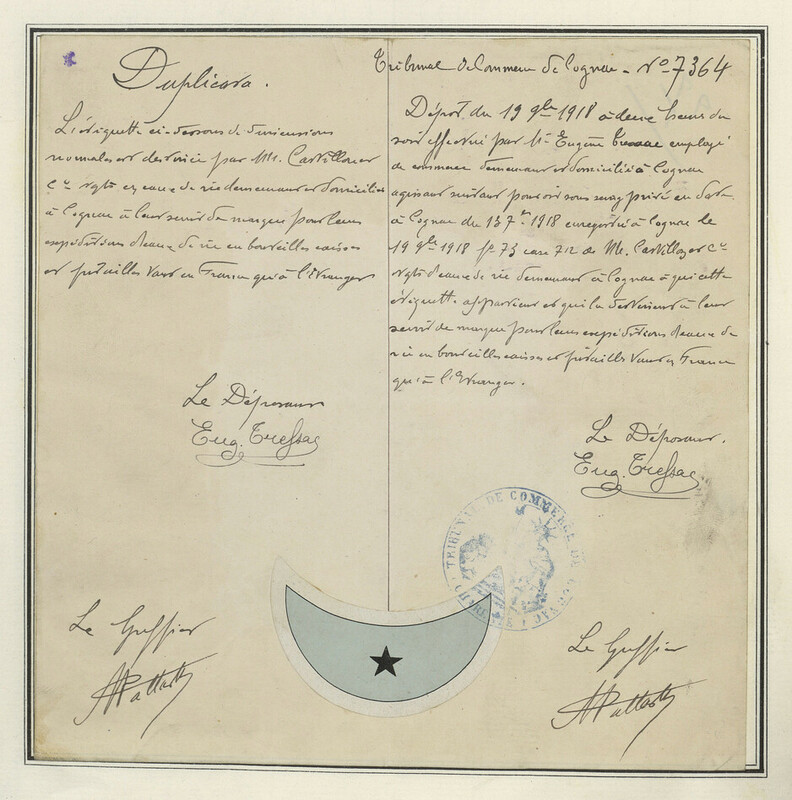 Duplicata.
L'étiquette ci-dessous de dimensions
normales est destinée par MM. Castillon et
Cie négts en eaux de vie demeurant et domiciliés
à Cognac à leur servir de marque pour leurs
expéditions d'eaux de vie en bouteilles caisses
et futailles tant en France qu'à l'Etranger
Le Déposant
Eug. Tressac
Le Greffier
Tribunal de Commerce de Cognac - No 7364
Dépôt du 19 9bre 1918 à deux heures du
soir effectué par Mr Eugène employé
de commerce demeurant et domicilié à Cognac
agissant suivant pouvoir sous seing privé en date
à Cognac du 1918 enregistré à Cognac le
19 9bre 1918 fo 73 case 712 de MM. Castillon et Cie
négts d'eaux de vie demeurant à Cognac à qui cette
étiquette appartient et qui la destinent à leur
servir de marque pour leurs expéditions d'eaux de
vie en bouteilles caisses et futailles tant en France
qu'à l'Etranger.
Le Déposant.
Eug. Tressac
TRIBUNAL DE COMMERCE DE
Le Greffier